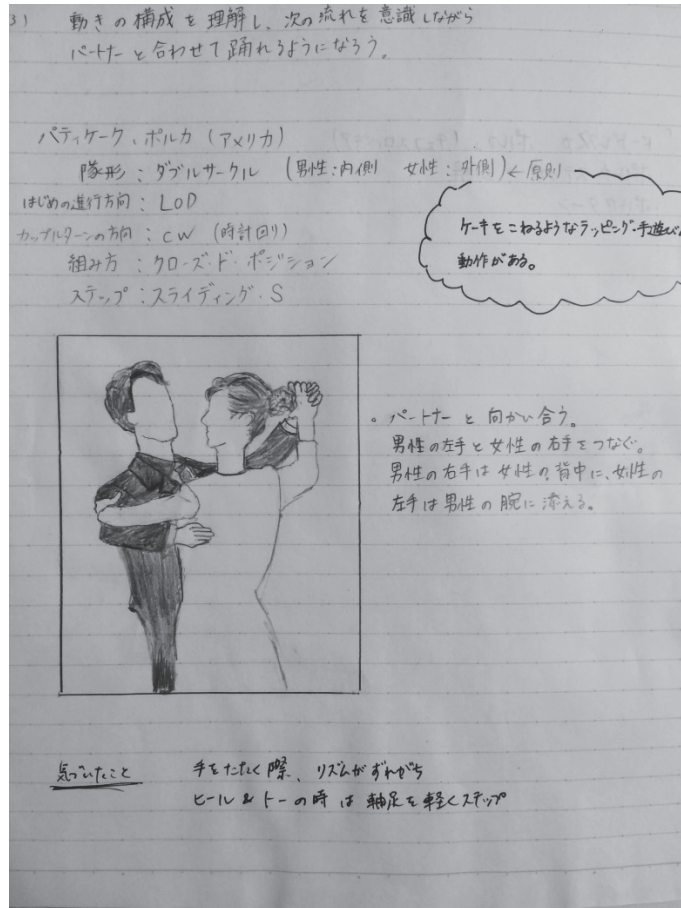 3) 動きの構成を理解し、次の流れを意識しながら
パートナーと合わせて踊れるようになろう。
パティケーク・ポルカ(アメリカ)
隊形:ダブルサークル (男性:内側 女性:外側)←原則
はじめの進行方向:LOD
カップルターンの方向:CW (時計回り)
組み方:クローズ・ド・ポジション
ステップ:スライディング・S
ケーキをこねるようなラッピング・手遊び
動作がある。
。パートナーと向かい合う。
男性の左手と女性の右手をつなぐ。
男性の右手は女性の背中に、女性の
左手は男性の腕に添える。
気づいたこと 手をたたく際、リズムがずれがち
ヒール&トーの時は軸足を軽くステップ